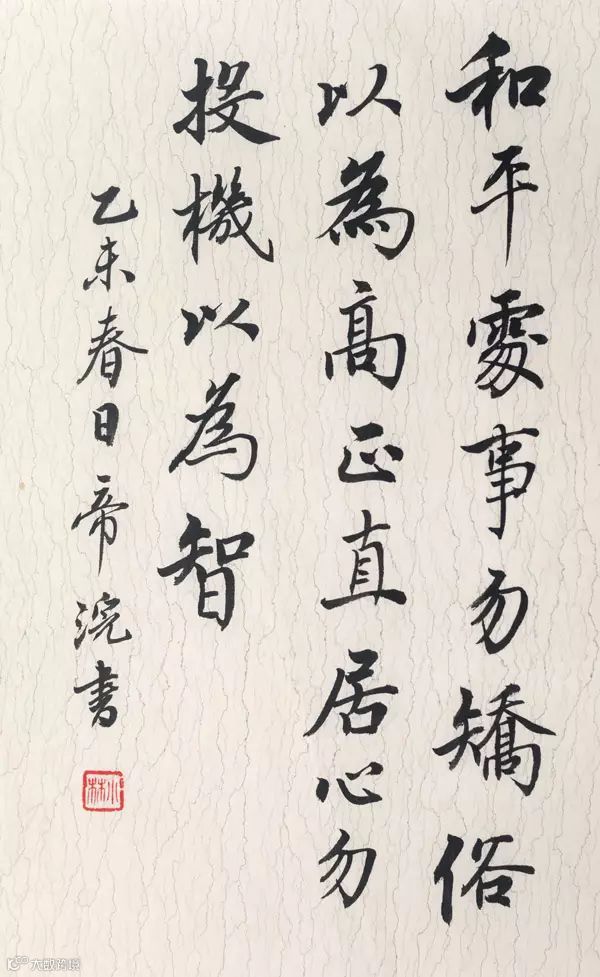 和平處事勿矯俗
以為高正直居心勿
投機以為智
乙未春日帝浣書
小林
大数跨境